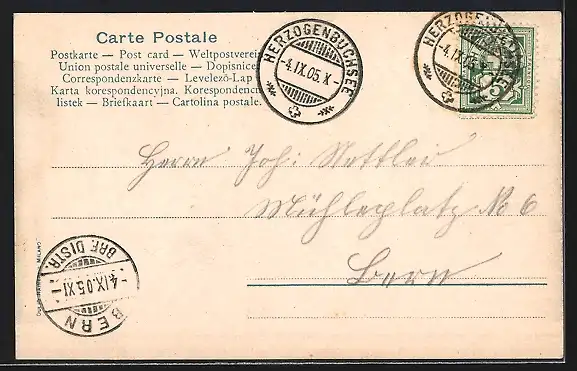 Carte Postale
Postkarte — Post card — Weltpostverein
Union postale universelle — Dopisnice
Correspondenzkarte — Levelező-Lap
Karta korespondencyjna. Korespondencni
listek — Briefkaart — Cartolina postale.
HERZOGENBUCHSEE
-4.IX.05.X-
HERZOGENBUCHSEE
-4.IX.05.X-
5
Herrn Joh: Nettlei
Mühleplatz No 6
Bern
BERN
-4.IX.05.XI-
BRF. DISTR.
MILANO